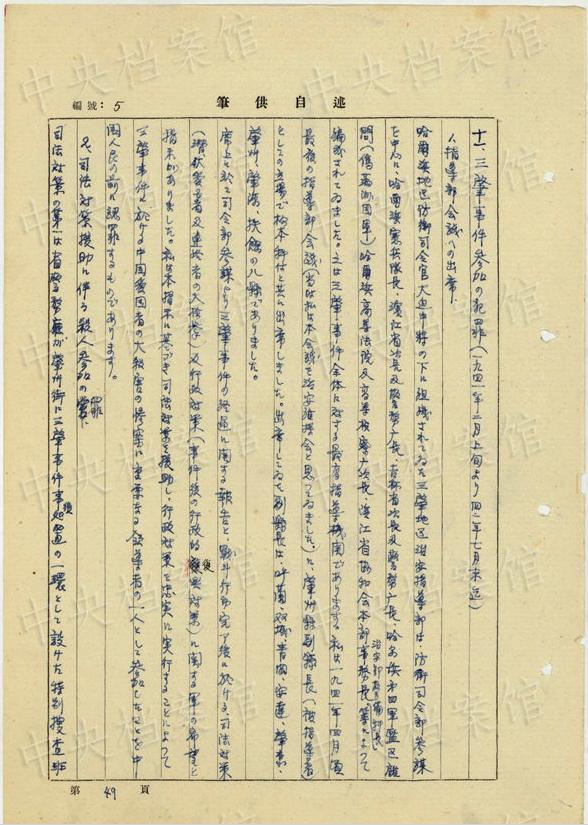 述自供筆
編號：5
十一、三肇事件参加の犯罪（一九四一年二月上旬より四二年七月末迄）
1、指導部会議への出席、
哈爾浜地区防衛司令官大迫中将の下に組織されてゐた三肇地区治安指導部は、防衛司令部参謀
を中心に、哈爾浜憲兵隊長、濱江省次長及警務庁長、吉林省次長及警務庁長、哈爾浜第四軍管区顧
問（偽満洲国軍）哈爾浜高等法院及高等検察庁次長、濱江省協和会本部事務長、治安部 等によつて
編成されてゐました。之は三肇事件全体に対する最高指導機関でありまする。私は一九四一年四月頃
最後の指導部会議（当時私は本会議を治安維持会と思つてゐました。）に、肇州県副県長（被指導者）
としての立場で 出席しました。出席してゐた副県長は、呼蘭、双城、青岡、安達、肇州、
肇東、肇源、扶餘の八県でありました。
席上に於て司令部参謀より三肇事件の経過に関する報告と、戦斗行動完了後に於ける司法対策
（潜伏愛国者及連絡者の大検挙）及行政対策（事件後の行政的復興対策）に関する軍の希望と
指示がありました。私は本指示に基づき司法対策を援助し、行政対策を忠実に実行することによつて
三肇事件に於ける中国愛国者の大殺害の惨案に 指導者の一人として参加したことを中
国人民の前に認罪するものであります。
2、司法対策援助に伴る殺人参加の罪、
司法対策の第一は省警務庁が肇州街に三肇事件事後処置の一環として設けた特別捜査班
第 49 頁
中央档案馆